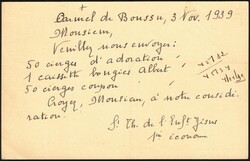 +
Carmel de Boussu, 3 Nov. 1939
Monsieur,
Veuillez nous envoyer:
50 cierges d'adoration
1 caissette bougies Albert
50 cierges coupon
Croyez, Monsieur, à notre considé-
ration.
Sr Th. de l'Enft Jésus